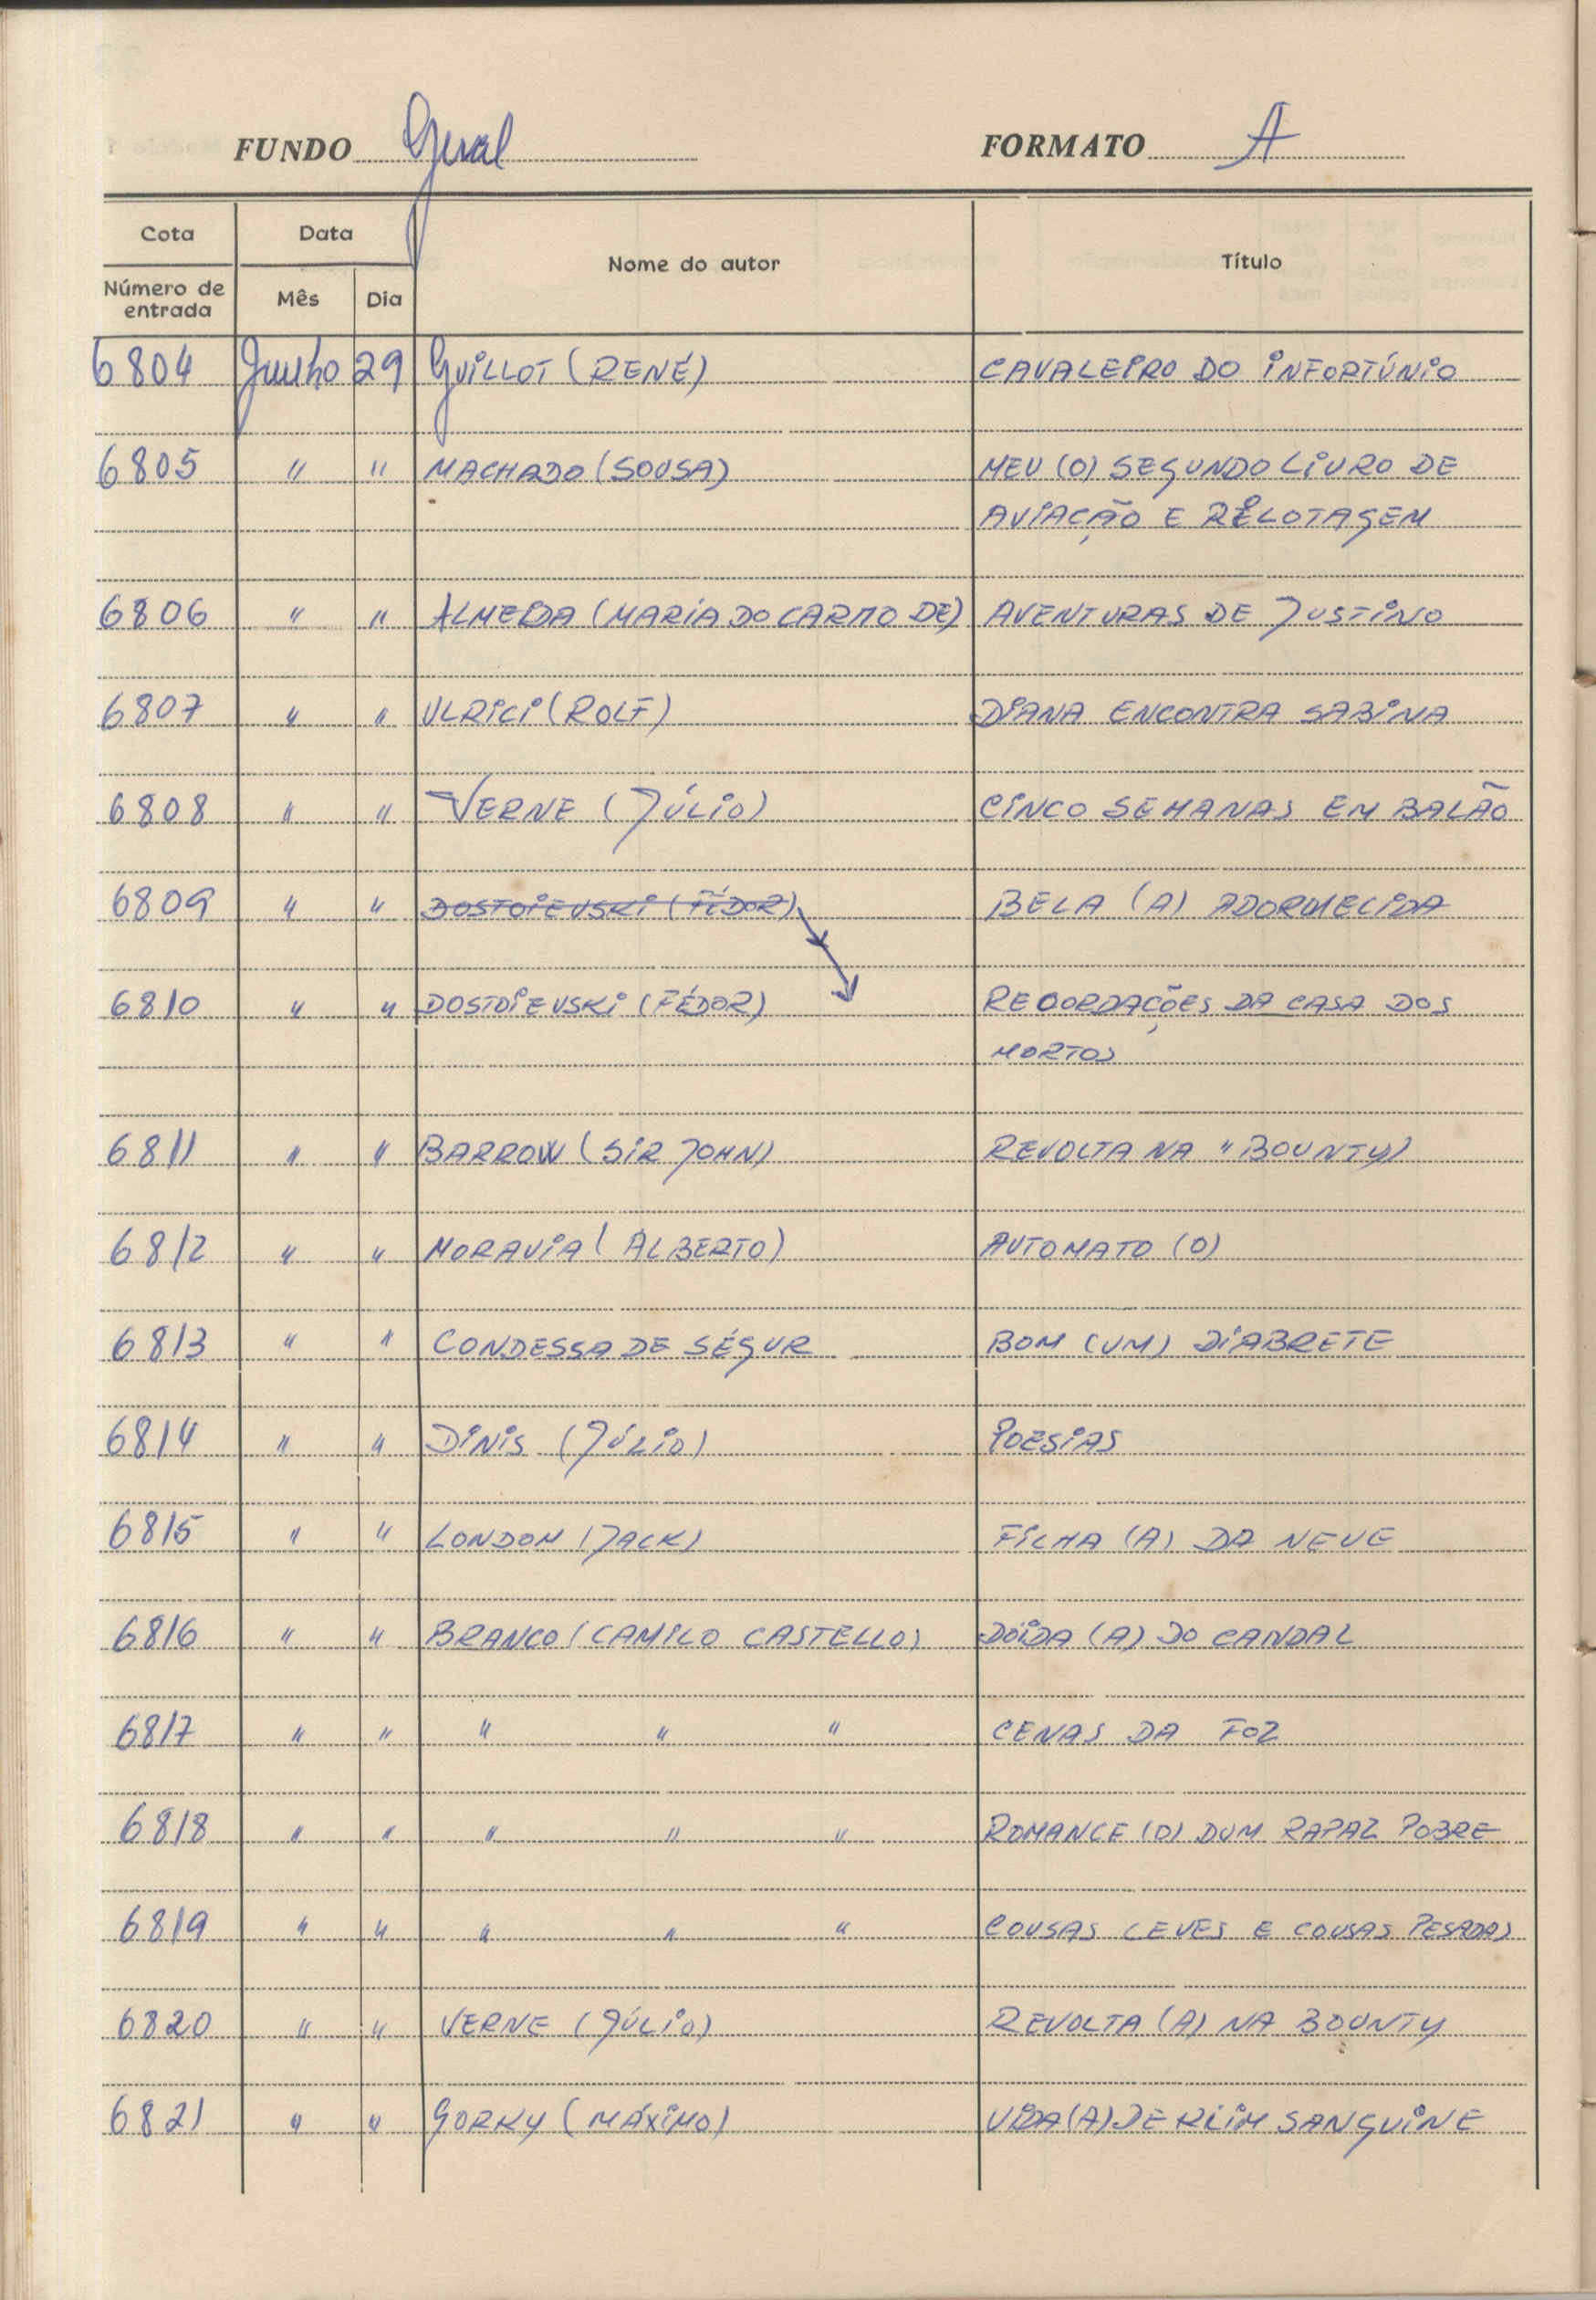 FUNDO Geral FORMATO A
Cota Data Nome do autor Título
Número de entrada Mês Dia
6804 Junho 29 GUILLOT (RENÉ) CAVALEIRO DO INFORTÚNIO
6805 " " MACHADO (SOUSA) MEU (O) SEGUNDO LIVRO DE
AVIAÇÃO E PILOTAGEM
6806 " " ALMEIDA (MARIA DO CARMO DE) AVENTURAS DE JUSTINO
6807 " " ULRICI (ROLF) DIANA ENCONTRA SABINA
6808 " " VERNE (JÚLIO) CINCO SEMANAS EM BALÃO
6809 " " DOSTOIEVSKI (FÉDOR) BELA (A) ADORMECIDA
6810 " " DOSTOIEVSKI (FÉDOR) RECORDAÇÕES DA CASA DOS
MORTOS
6811 " " BARROW (SIR JOHN) REVOLTA NA "BOUNTY)
6812 " " MORAVIA (ALBERTO) AUTOMATO (O)
6813 " " CONDESSA DE SÉGUR BOM (UM) DIABRETE
6814 " " DINIS (JÚLIO) POESIAS
6815 " " LONDON (JACK) FILHA (A) DA NEVE
6816 " " BRANCO (CAMILO CASTELLO) DOIDA (A) DO CANDAL
6817 " " " " " CENAS DA FOZ
6818 " " " " " ROMANCE (O) DUM RAPAZ POBRE
6819 " " " " " COUSAS LEVES E COUSAS PESADAS
6820 " " VERNE (JÚLIO) REVOLTA (A) NA BOUNTY
6821 " " GORKY (MÁXIMO) VIDA (A) DE KLIM SANGUINE